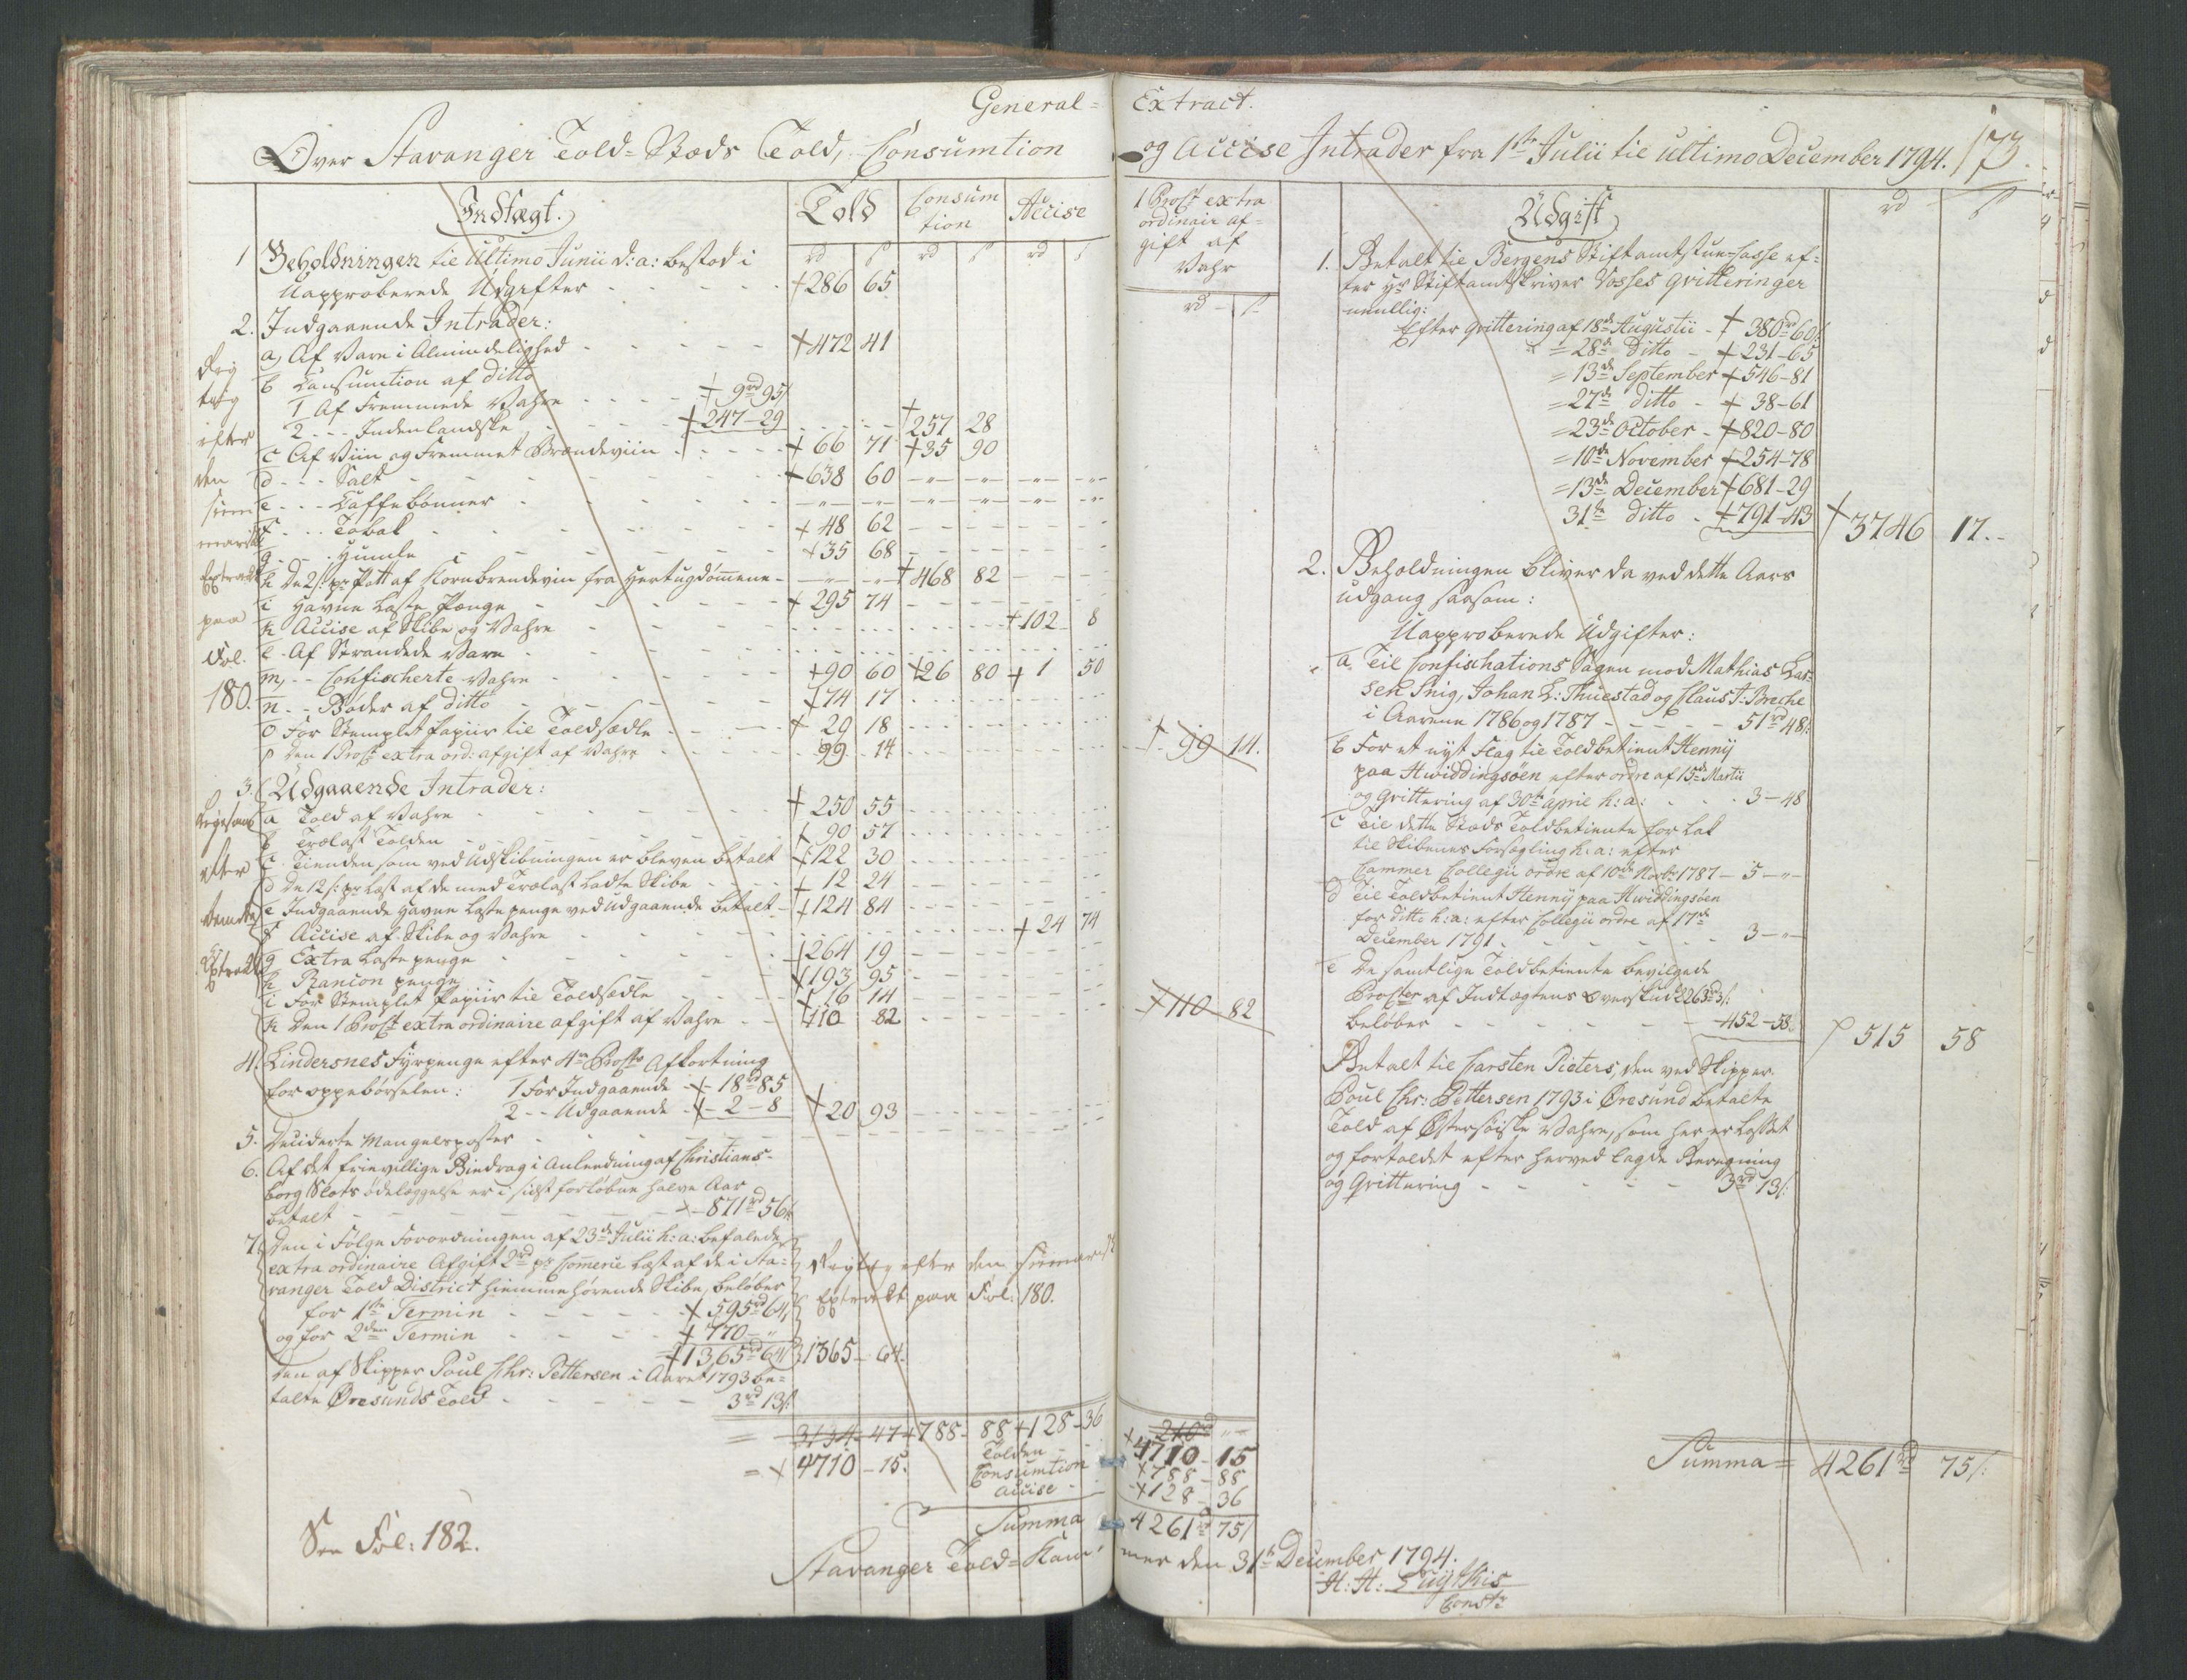 General= Extract.
Over Stavanger Told=Stæds Told, Consumtion og Accise Intrader fra 1ste Julii til ultimo December 1794.
173.
Indtægt.
Told
Consumtion
Accise
rd ß rd ß rd ß
1 Beholdningen til Ultimo Junii d: a: bestod i
Uapproberede Udgifter - - - +286 65
2. Indgaaende Intrader:
a, Af Vare i Almindelighed - - - +472 41
b Consumtion af ditto
1 Af Fremmede Vahre - - - + 9rd 95ß
2 - - Indenlandske - - - +247-29 +257 28
c Af Viin og Fremmet Brændeviin - - - +66 71 +35 90
d - - - Salt - - - +638 60
e - - - Caffebønner - - -
f - - - Tobak - - - +48 62
g - - - Humle - - - +35 68
h De 2ß pr Pott af Kornbrendevin fra Hertugdømmene - +468 82
i Havne Laste Penge - - - +295 74
k Accise af Skibe og Vahre - - - +102 8
l Af Strandede Vare - - -
m, - - Confischerte Vahre - - - +90 60 +26 80 +1 50
n - - Bøder af ditto - - - +74 17
o For Stemplet Papiir til Toldsedle - - - +29 18
p Den 1 Procto extra ord: afgift af Vahre - - - 99 14
3. Udgaaende Intrader:
a Told af Vahre - - - +250 55
b Trælast Tolden - - - +90 57
c Tienden som ved Udskibningen er bleven betalt +122 30
d De 12ß pr Læst af de med Trælast ladte Skibe - +12 24
e Indgaaende Havne Laste penge ved Udgaaende betalt - +124 84
f Accise af Skibe og Vahre - - - +24 74
g Extra Laste penge - - - +264 19
h Rancon penge - - - +193 95
i For Stemplet Papiir til Toldsedle - - - +16 14
k Den 1 Procto extra ordinaire afgift af Vahre - - +110 82
4. Lindersnes Fyrpenge efter 4re Procto Afkortning
for oppebørselen: 1 For Indgaaende + 18rd 85
2 - - Udgaaende + 2-8 +20 93
5. Deciderte Mangelsposter - - -
6. Af det frievillige Biedrag i Anledning af Christians-
borg Slots ødelæggelse er i sidst forløbne halve Aar
betalt - - - 871rd 56ß
7. Den i Følge Forordningen af 23de Julii h: a: befalede
extra ordinaire Afgift 2rd pr Commerce Læst af de i Sta-
vanger Told District hiemmehørende Skibe, beløber
for 1ste Termin - - - + 595rd 64ß
og for 2den Termin - - - + 770-"
+1365rd 64ß 1365 - 64.
Den af Skipper Poul Chr: Pettersen i Aaret 1793 be-
talte Øresunds Told - - - 3rd 13ß
= 3134-47 +788-88 +128-36
= + 4710-15.
Tolden - -
Consumtion -
Accise - -
Summa
Rigtig efter den summariske Extract paa Fol. 180.
Ligesaa efter samme Extract
Rigtig efter den Summarisk
Extract paa Fol: 180.
See Fol: 182.
1 Procto extra
ordinair af-
gift af
Vahr
rd ß
+ 99 14.
+110 82
210rd "
+4710-15
+788-88
+128-36
4261rd 75ß
Stavanger Told=Kammer den 31te December 1794.
H: H:
Const:
Udgift
rd ß
1. Betalt til Bergens Stiftamtstue-Casse ef-
ter Hr Stiftamtskriver Vosses Qvitteringer
nemlig:
Efter Qvittering af 18de Augustii - + 380rd 60ß
= 28de ditto - +231-65
= 13de September +546-81
= 27de ditto - + 38-61
= 23de October - +820-80
= 10de November +254-78
= 13de December +681-29
31te ditto - +791-43 +3746 17.-
2. Beholdningen bliver da ved dette Aars
udgang saasom:
Uapproberede Udgifter:
a. Til Confischations Sagen mod Mathias Lar-
sen Snig, Johan L: Thuestad og Claus J: Breche
i Aarene 1786 og 1787 - - - 51rd 48ß
b For et nyt Flag til Toldbetient Henny
paa Hwiddingsöen efter ordre af 15de Martii
og Qvittering af 30te april h: a: - - - 3-48
c Til dette Stæds Toldbetiente for Lak
til Skibenes Forsegling h: a: efter
Cammer Collegii ordre af 10de Novbr 1787 - 5-"-
d Til Toldbetient Henny paa Hwiddingsöen
for ditto h: a: efter Collegii ordre af 17de
December 1791 - - - 3-"-
e De samtlige Toldbetiente bevilgede
Procter af Indtægtens Overskud 2263rd 3ß
beløber - - - 452-58 515 58
Betalt til Carsten Pieters, den ved Skipper
Poul Chr: Pettersen 1793 i Øresund betalte
Told af Østersøiske Vahre, som her er losset
og fortoldet efter herved lagde Beregning
og Qvittering - - - 3rd 13ß
Summa = 4261rd 75ß